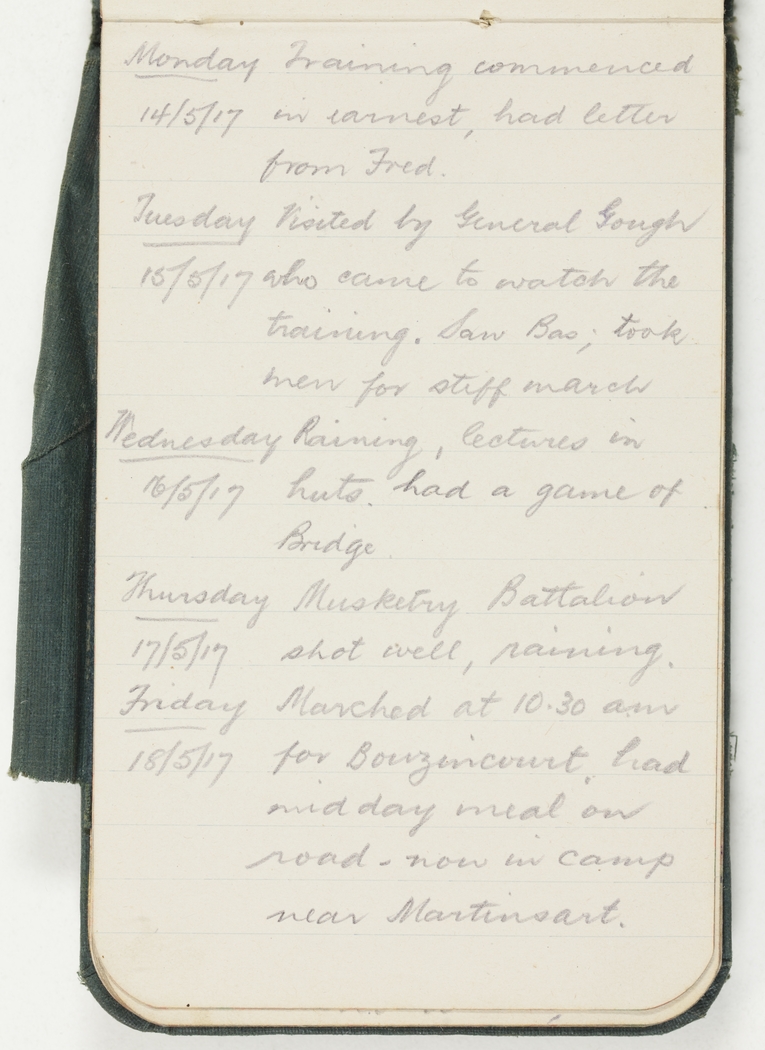 Monday Training commenced
14/5/17 in earnest, had letter
from Fred.
Tuesday Visited by General Gough
15/5/17 who came to watch the
training. Saw Bas; took
men for stiff march
Wednesday Raining, lectures in
16/5/17 huts. had a game of
Bridge.
Thursday Musketry Battalion
17/5/17 shot well, raining.
Friday Marched at 10.30 am
18/5/17 for Bouzincourt, had
midday meal on
road - now in camp
near Martinsart.